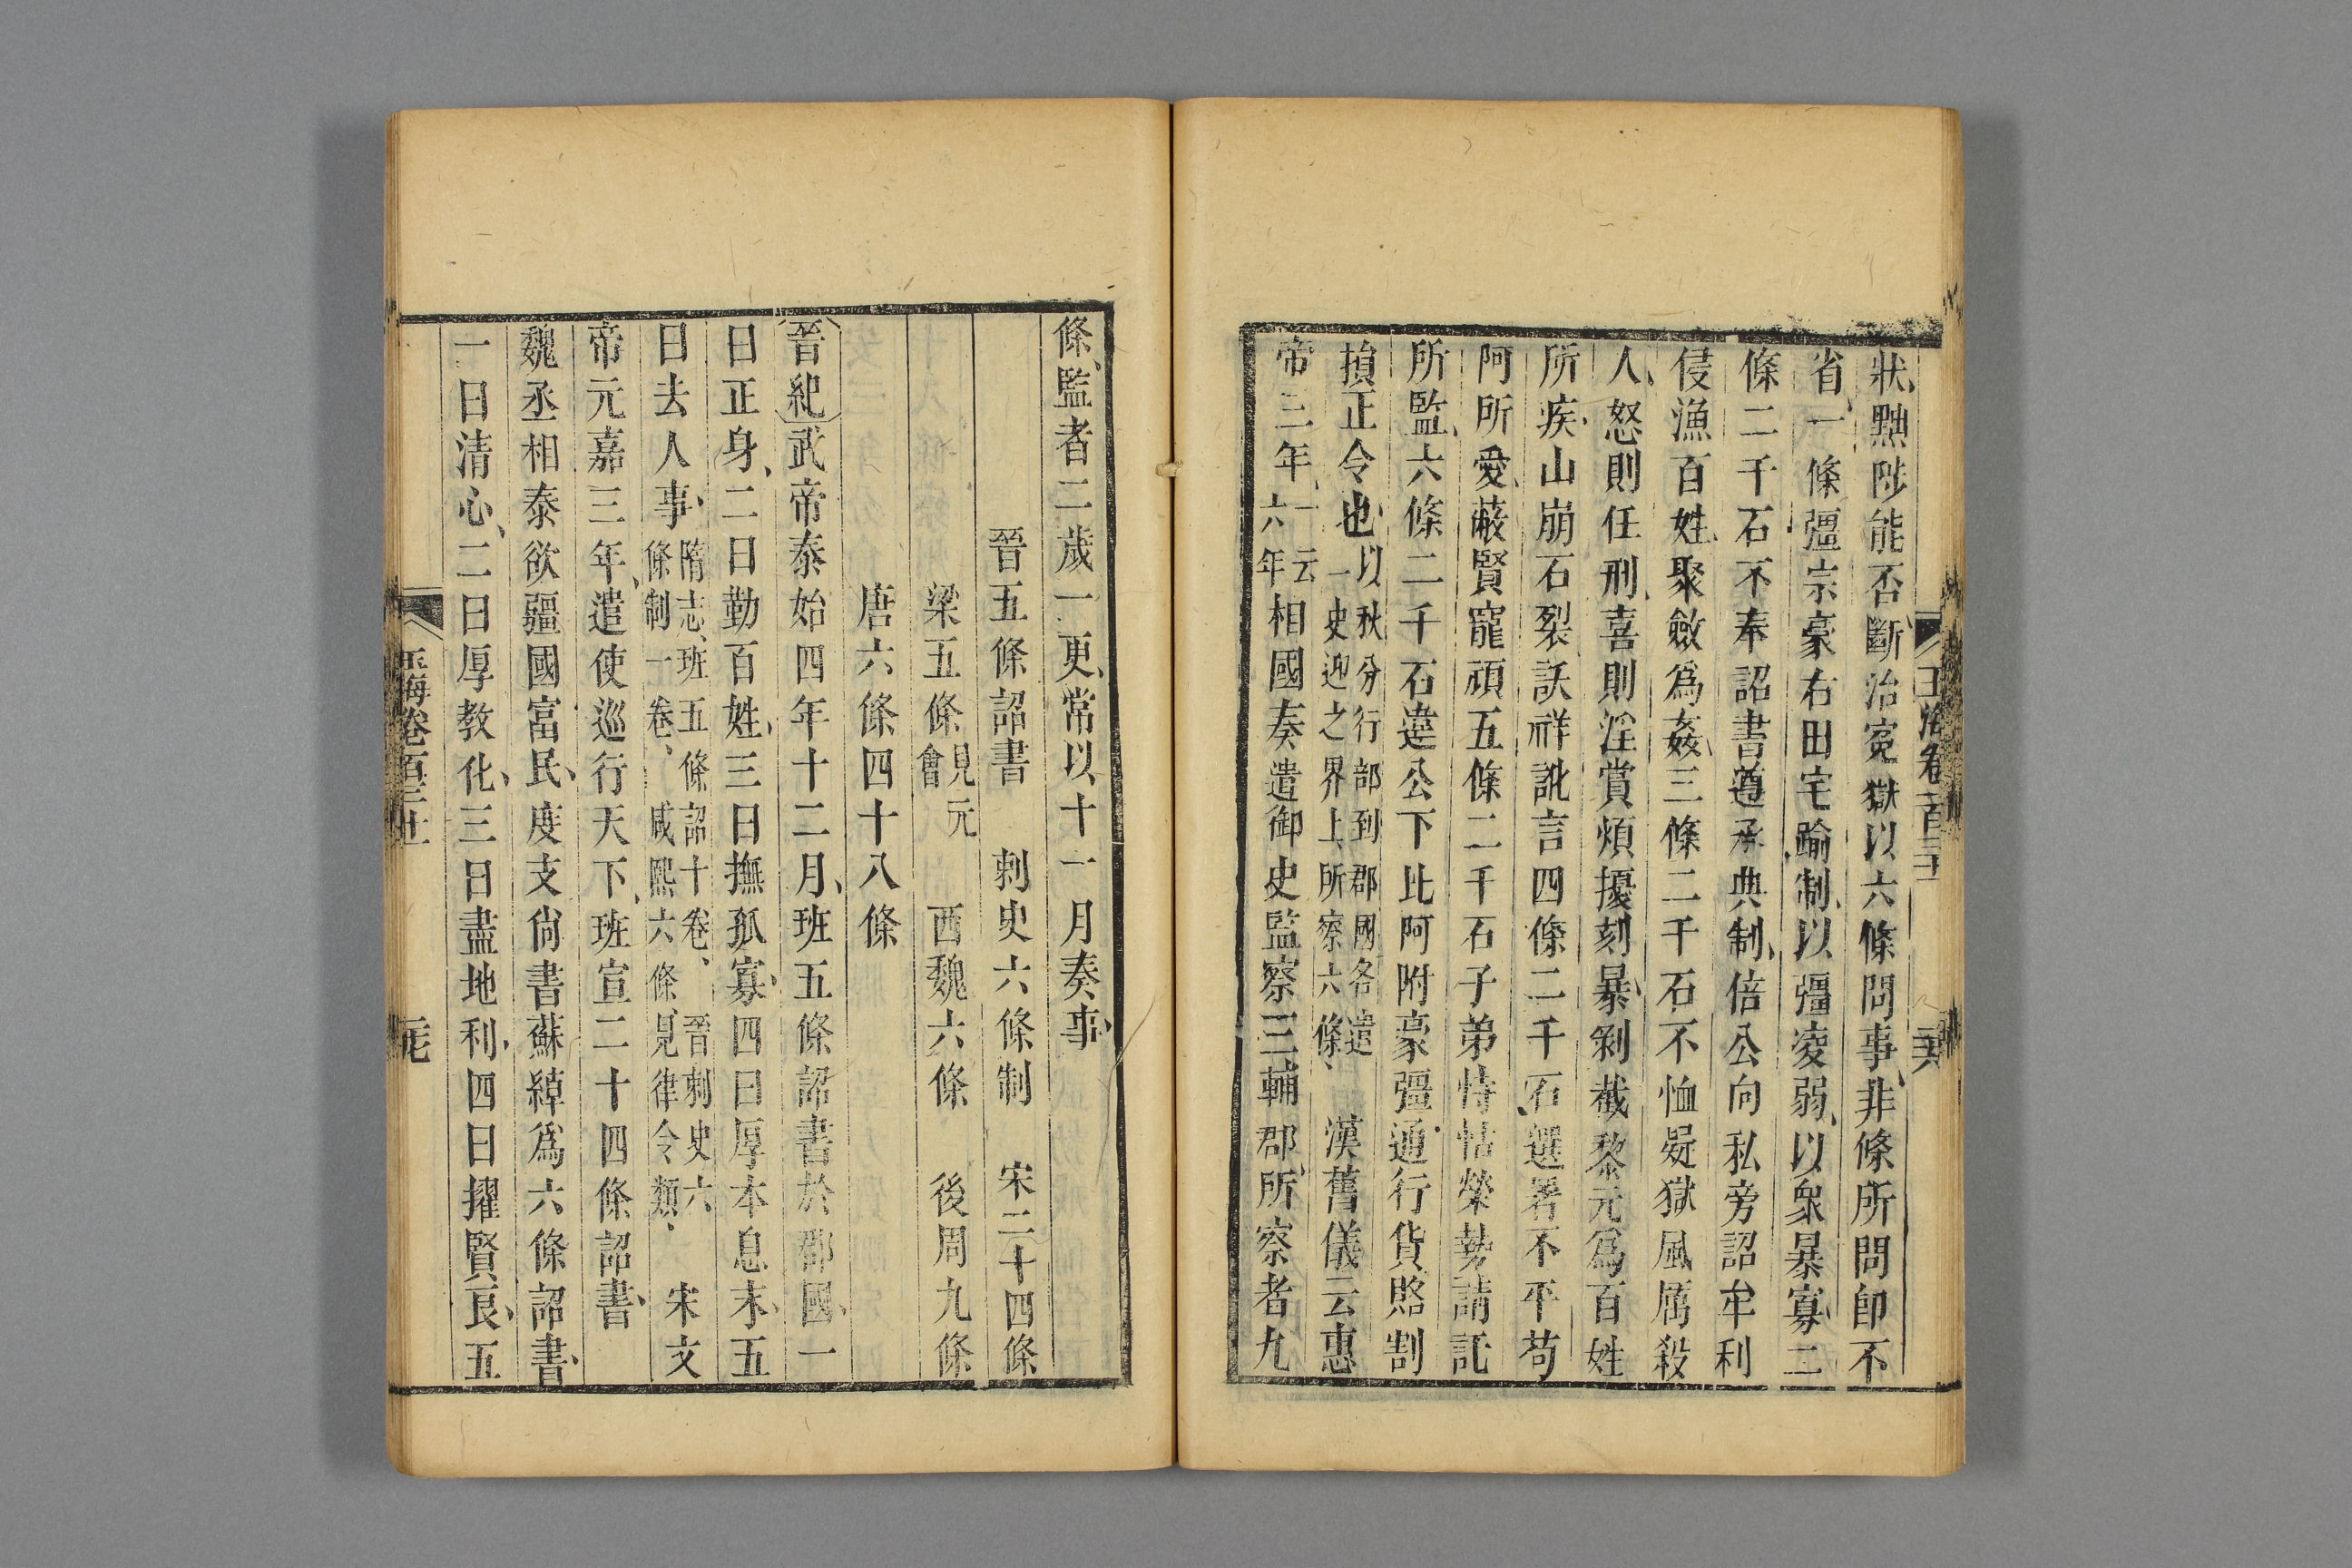 狀黜陟能否斷治寃獄以六條問事非條所問卽不
省一條彊宗豪右田宅踰制以彊凌弱以衆暴寡二
條二千石不奉詔書遵承典制倍公向私旁詔牟利
侵漁百姓聚斂爲姦三條二千石不恤疑獄風厲殺
人怒則任刑喜則淫賞煩擾刻暴剝截黎元爲百姓
所疾山崩石裂訞祥訛言四條二千石選署不平苟
阿所愛蔽賢寵頑五條二千石子弟恃怙榮勢請託
所監六條二千石違公下比阿附豪彊通行貨賂割
損正令也以秋分行部到郡國各遣一史迎之界上所察六條漢舊儀云惠
帝三年一云六年相國奏遣御史監察三輔郡所察者九
條監者二歲一更常以十一月奏事
晉五條詔書 刺史六條制 宋二十四條
梁五條見元會 西魏六條 後周九條
唐六條四十八條
晉紀武帝泰始四年十二月班五條詔書於郡國一
曰正身二曰勤百姓三曰撫孤寡四曰厚本息末五
曰去人事隋志班五條詔十卷晉刺史六條制一卷咸熙六條見律令類 宋文
帝元嘉三年遣使巡行天下班宣二十四條詔書
魏丞相泰欲彊國富民度支尙書蘇綽爲六條詔書
一曰清心二曰厚教化三曰盡地利四曰擢賢良五
玉海卷百三十